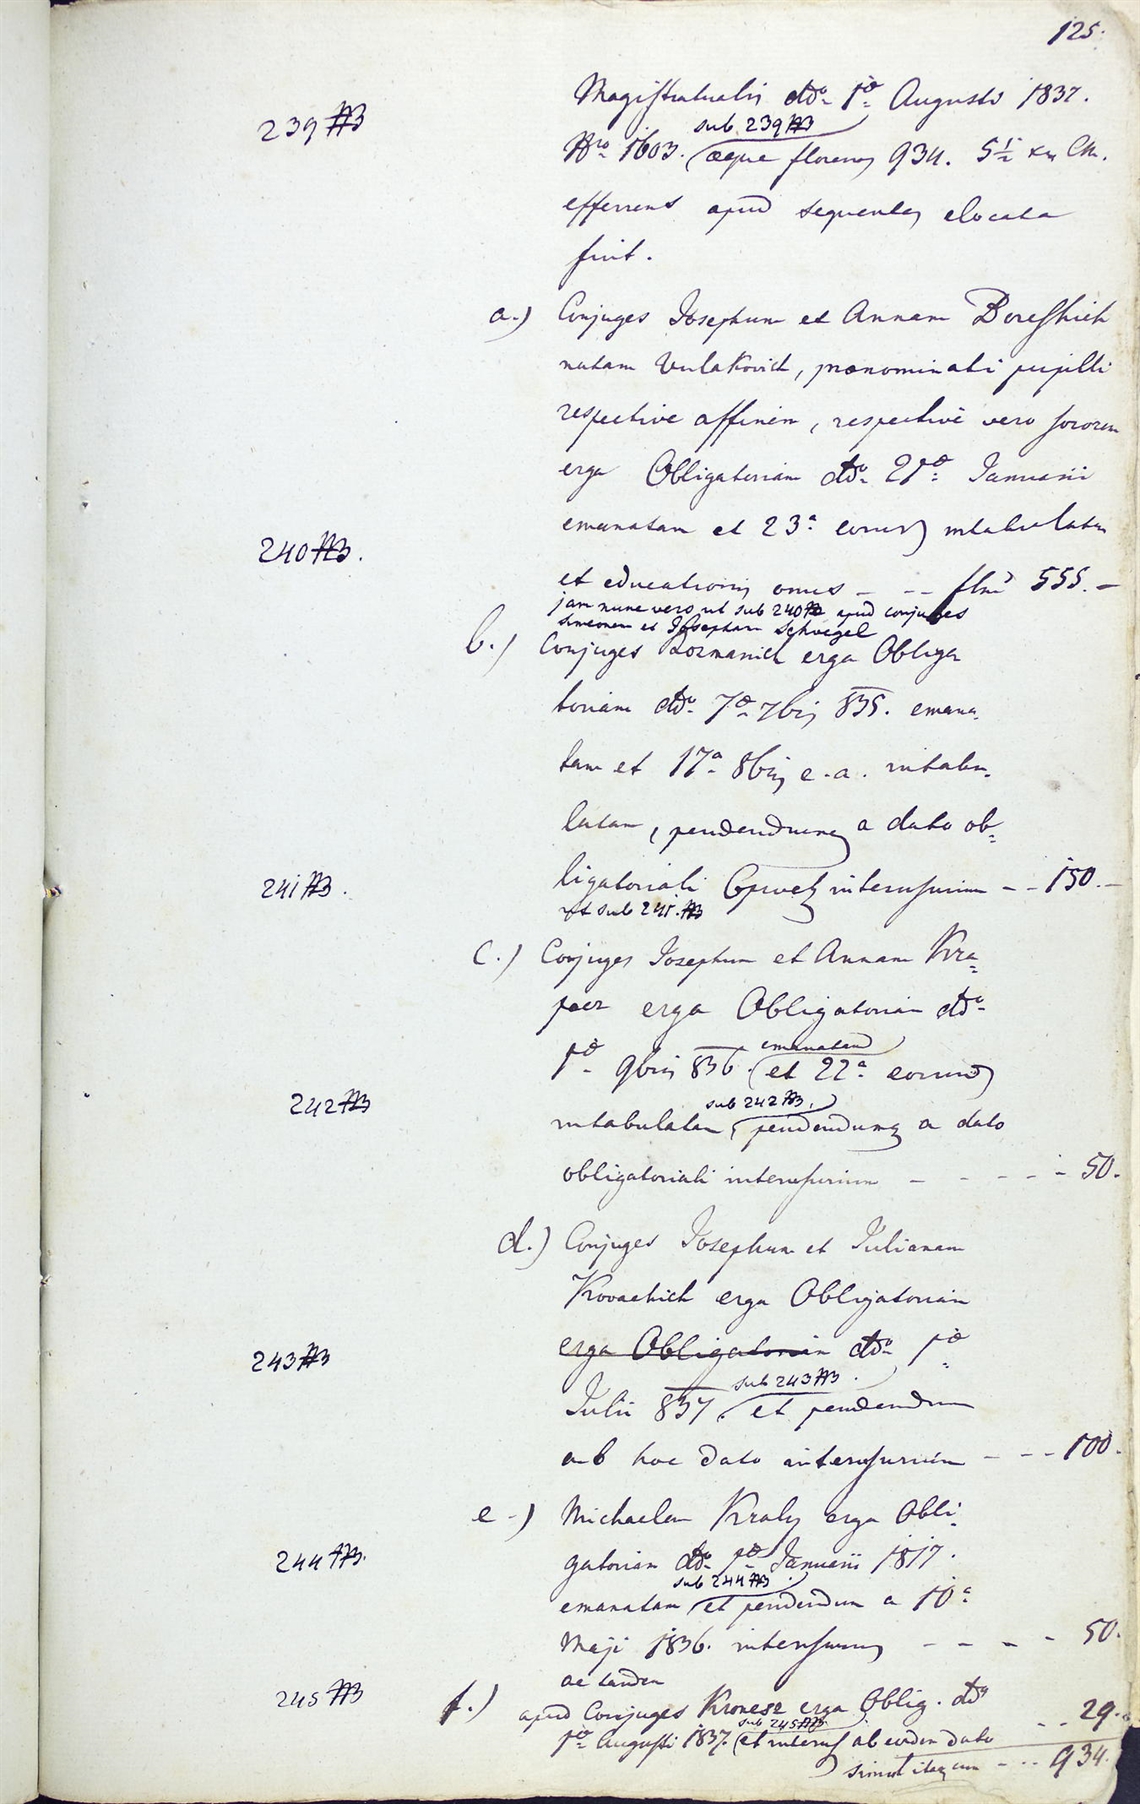 125.
Magistratualis ddo 1o Augusti 1837.
239
sub 239
Nro 1603. aeque florenos 934. 5 1/2 xr CM.
efferrens apud sequentes elocata
fuit.
a.) Conjuges Josephum et Annam Boreshich
natam Vulakovich, praenominati pupilli
respective affinem, respective vero sororem
erga Obligatoriam ddo 21o Januarii
emanatam et 23a eorund intabulatam
240
et educationis onus - - - 555. -
jam nunc vero ut sub 240 apud conjuges
Simeonem et Josepham Schvegel
b.) Conjuges Lozmanich erga Obliga
toriam ddo 7o 7bris 835. emana-
tam et 17a 8bris e. a. intabu-
latam, pendendumq a dato ob-
241
ligatoriali interusurium - - 150. -
ut sub 241.
c.) Conjuges Josephum et Annam Kra-
pecz erga Obligatoriam ddo
emanatam
1o 9bris 836. et 22a eorund
242
sub 242
intabulatam, pendendumq a dato
obligatoriali interusurium - - - - - 50.
d.) Conjuges Josephum et Julianam
Kovachich erga Obligatoriam
erga Obligatoriam ddo 1o
243
sub 243
Julii 837. et pendendum
ab hoc dato interusurium - - - 100.
e.) Michaelem Kraly erga Obli-
244
gatoriam ddo 1o Januarii 1817.
sub 244
emanatam et pendendum a 10a
Maji 1836. interusurium - - - - 50.
ac tandem
245
f.) apud Conjuges Kronesz erga Oblig. ddo
sub 245
1o Augusti 1837. et interus ab eodem dato - - 29.
simul - - - 934.